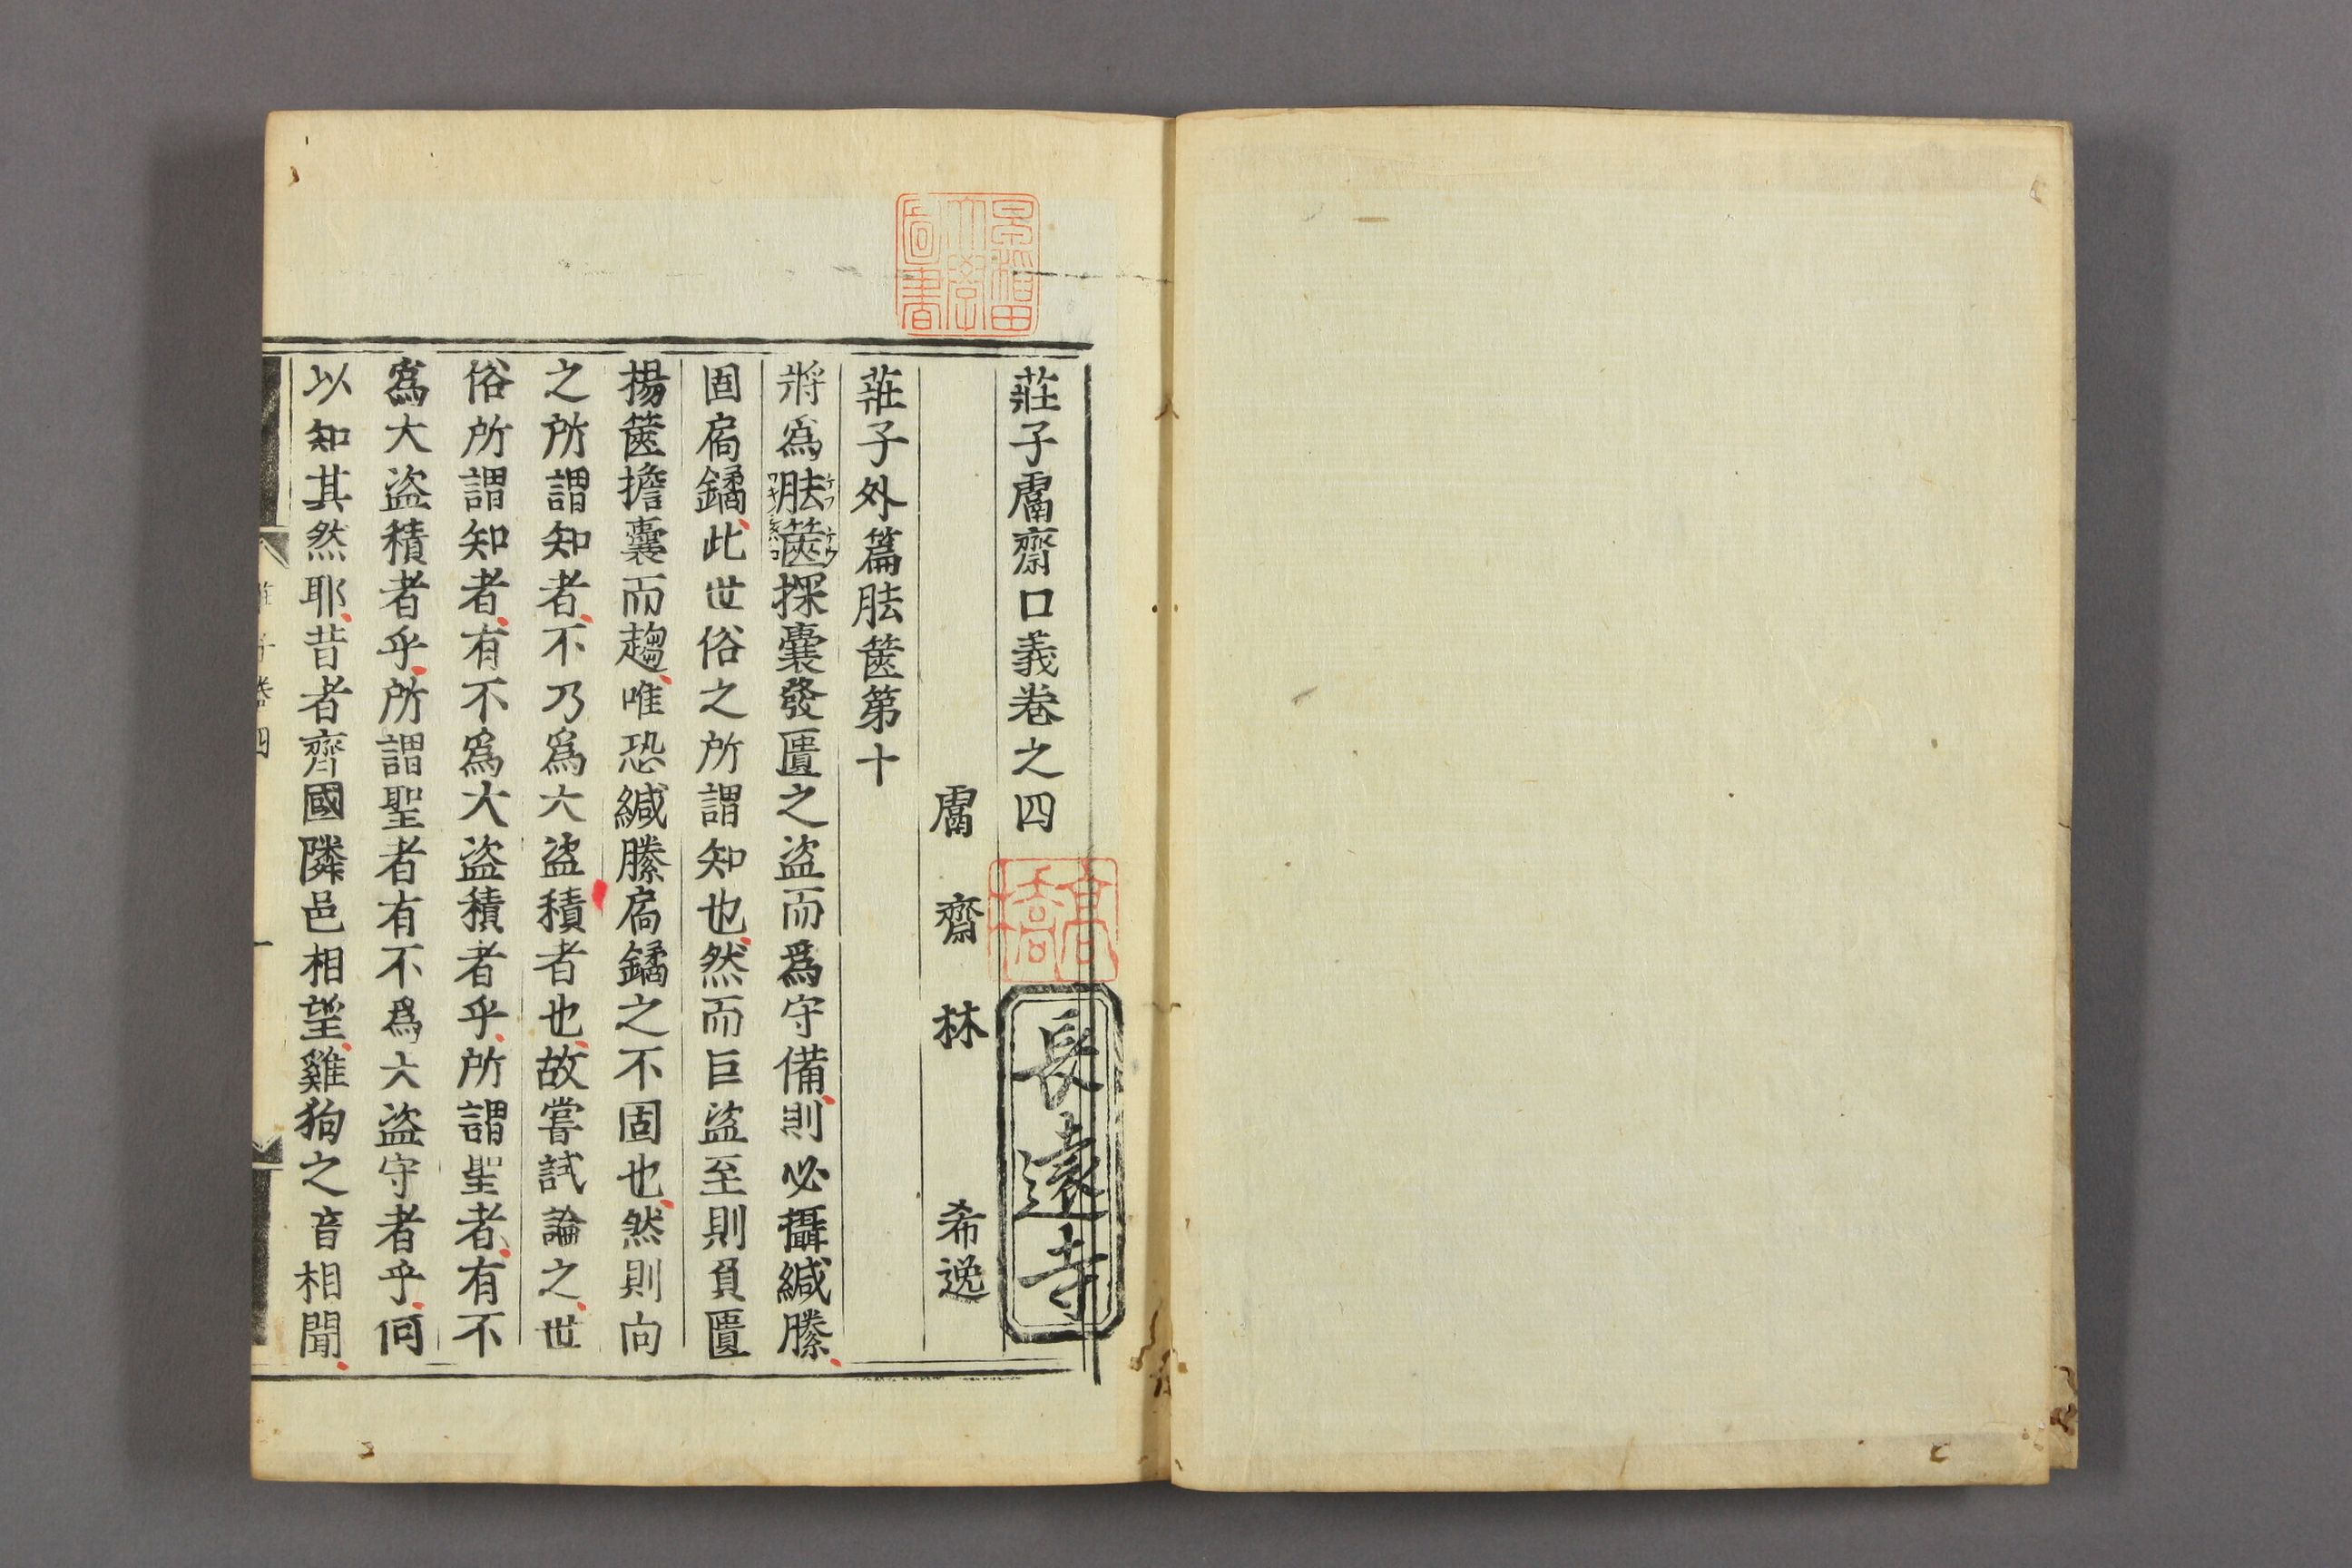 莊子鬳齋口義卷之四
鬳齋林希逸
莊子外篇胠篋第十
將爲胠篋探囊發匱之盜而爲守備則必攝緘縢
固扃鐍此世俗之所謂知也然而巨盜至則負匱
揚篋擔囊而趨唯恐緘縢扃鐍之不固也然則向
之所謂知者不乃爲大盜積者也故嘗試論之世
俗所謂知者有不爲大盜積者乎所謂聖者有不
爲大盜積者乎所謂聖者有不爲大盜守者乎何
以知其然耶昔者齊國隣邑相望雞狗之音相聞
莊子卷四
一
早稲田大學圖書
髙橋
長遠寺